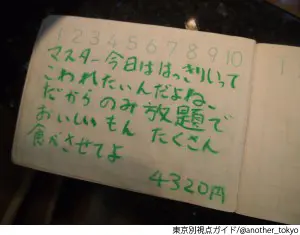 1 2 3 4 5 6 7 8 9 10
マスター今日ははっきりいって
こわれたいんだよね、
だからのみ放題で
おいしいもん たくさん
食べさせてよ
4320円
東京別視点ガイド/@another_tokyo